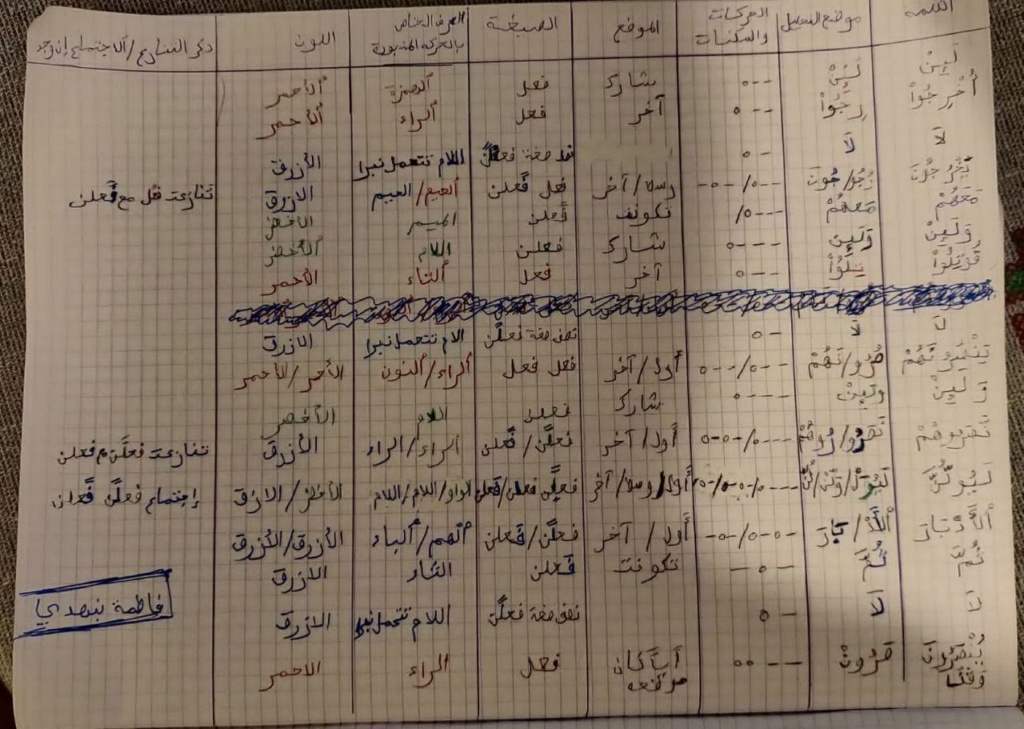 الكلمة موضع التفعيل الحركات والسكنات الموضع الصيغة الحرف الخاص بالحركة المنبورة اللون ذكر التنازع/الاجتماع إن وجد
لَئِنْ لَئِنْ شارك فعل الهمزة الأحمر
أُخْرِجُواْ رِجُواْ آخر فعل الراء الأحمر
لَا لَا نصف صفة فعلَّن اللام تتحمل نبرا الأزرق
يَخْرُجُونَ وسط/آخر فعل فَعلن الجيم الازرق تنازعت فعل مع فَعلن
مَعَهُمْ مَعَهُمْ تكونت فَعلن الميم الأخضر
وَلَئِنْ وَلَئِنْ شارك فعلن اللام الأخضر
قُوتِلُواْ تِلُواْ آخر فعل التاء الأحمر
لَا لَا نصف صفة فعلَّن الام تتحمل نبرا الازرق
يَنْصُرُونَهُمْ صُرُو/نَهُمْ أول/آخر فعل فعل الراء/النون الأحمر/الأحمر
وَلَئِنْ وَلَئِنْ شارك فعلن اللام الأخضر
نَصَرُوهُمْ نَصَرُو/رُوهُمْ أول/آخر فعلَّن/فَعلن الراء/الراء الأزرق تنازعت فعلَّن م فعلن
لَيُوَلُّنَّ أول/وسط/آخر فعلَّن فعلن/فَعلن الواو/اللام/اللام الأخضر/الازرق إجتماع فعلَّن فَعلن
الأَدْبَارَ أَلأَدْ/بَارَ أول/آخر فعلَّن/فَعلن الهمز/الباء الأزرق/الأزرق
ثُمَّ ثُمَّ تكونت فَعلن الثاء الازرق
لَا لَا نصف صفة فعلَّن اللام تتحمل نبرا الازرق
يُنْصَرُونَ وقفا صَرُونْ أيا كان موقعه فعل الراء الاحمر
فاطمة بنمهدي